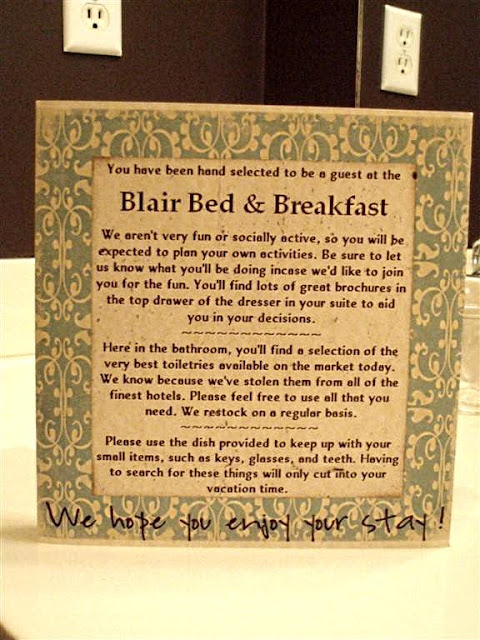 You have been hand selected to be a guest at the
Blair Bed & Breakfast
We aren't very fun or socially active, so you will be
expected to plan your own activities. Be sure to let
us know what you'll be doing incase we'd like to join
you for the fun. You'll find lots of great brochures in
the top drawer of the dresser in your suite to aid
you in your decisions.
~~~~~~~~~~~~
Here in the bathroom, you'll find a selection of the
very best toiletries available on the market today.
We know because we've stolen them from all of the
finest hotels. Please feel free to use all that you
need. We restock on a regular basis.
~~~~~~~~~~~~
Please use the dish provided to keep up with your
small items, such as keys, glasses, and teeth. Having
to search for these things will only cut into your
vacation time.
We hope you enjoy your stay!